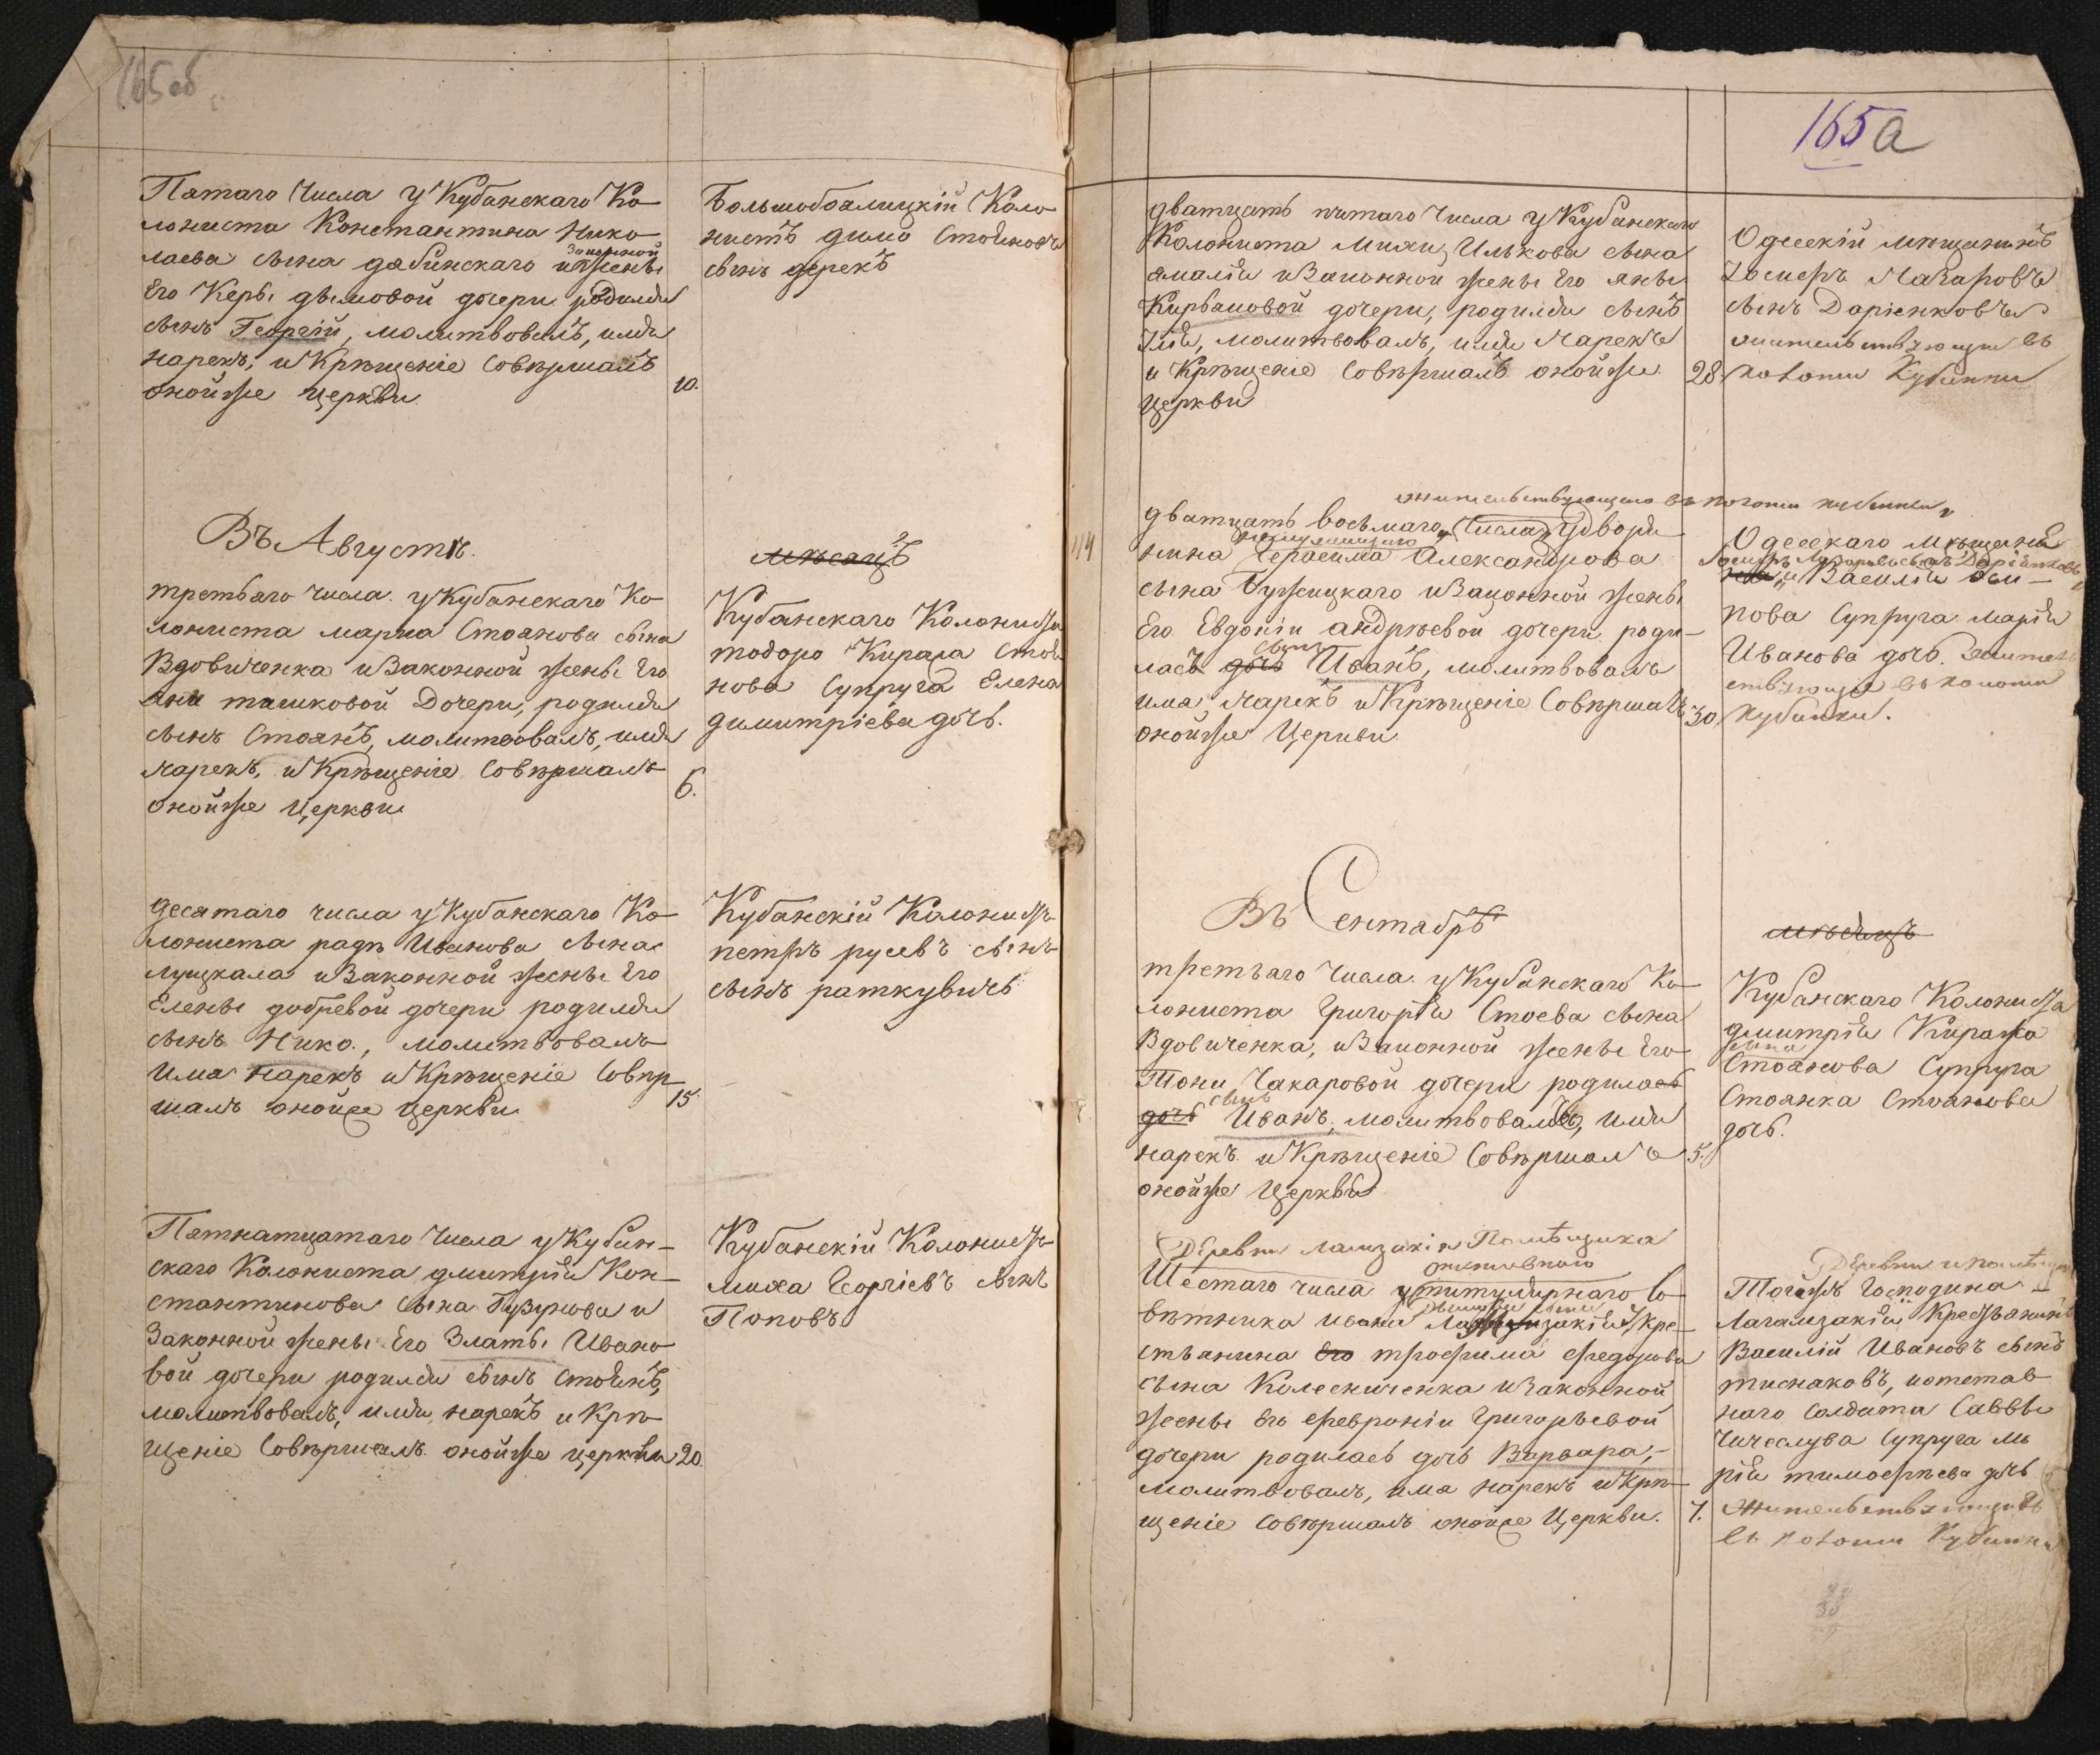 165 об
Пятаго числа у Кубанскаго Ко-
лониста Константина Нико-
законной
лаева сына дабинскаго и жены
Его Керы дѣмовой дочери родился
сынъ Георгій, молитвовалъ, имя
нарекъ, и Крѣщеніе Совѣршалъ
онойже Церкви
10.
Большобоалицкій Коло
нистъ димо Стойновъ
сынъ дерекъ
Въ Августѣ.
мѣсяцъ
третьяго числа у Кубанскаго Ко-
лониста марка Стоянова сына
Вдовиченка и Законной жены Его
Яни ташковой Дочери, родился
сынъ Стоянъ, молитвовалъ, имя
нарекъ, и Крѣщеніе Совѣршалъ
онойже Церкви
6.
Кубанскаго Колониста
тодоро Кирала Стоя
нова Супруга Елена
димитріева дочь.
десятаго числа у Кубанскаго Ко-
лониста радѣ Иванова сына
луцкала и Законной жены Его
Елены добревой дочери родился
сынъ Нико, молитвовалъ
имя нарекъ и Крѣщеніе Совѣр-
шалъ онойже церкви
15.
Кубанскій Колонистъ
петръ русевъ сынъ
сынъ раткувичь
Пятнатцатаго числа у Кубан-
скаго Колониста дмитрія Кон-
стантинова сына Гузунова и
Законной жены Его Златы Ивано
вой дочери родился сынъ Стоянъ,
молитвовалъ, имя нарекъ и Крѣ-
щеніе Совѣршалъ онойже церкви
20.
Кубанскій Колонистъ
миха Георгіевъ сынъ
Поповъ
165 а
дватцать пятаго числа у Кубанскаго
Колониста Михи Илькова сына
и Законной жены Его Яны
Кирвановой дочери, родился сынъ
молитвовалъ, имя нарекъ
и Крѣщеніе Совѣршалъ онойже
Церкви
28
Одескій мѣщанинъ
Іосифъ Лазаровъ
сынъ Даріенковъ
жительствующи въ
колоніи Кубанки
жительствующаго въ колоніи кубанки
дватцать восьмаго числа у двори
нина Герасима Александрова
сына Бужицкаго и Законной жены
Его Евдокіи андрѣевой дочери роди-
сынъ
лась дочь Иванъ, молитвовалъ
имя нарекъ и Крѣщеніе Совѣршалъ
онойже Церкви
30
Одескаго мѣщанина
Іосифъ Лазаровъ сынъ Даріенковъ
и Василія Оси-
пова Супруга марія
Иванова дочь. жительс
ствующіе въ колоніи
кубанки.
Въ Сентабрѣ
мѣсяцъ
третьаго числа у Кубанскаго Ко-
лониста Григорія Стоева сына
Вдовиченка, и Законной жены Его
Тони Чакаровой дочери родилась
сынъ
дочь Иванъ, молитвовалъ, имя
нарекъ и Крѣщеніе Совѣршалъ
онойже Церкви
5.
Кубанскаго Колониста
дмитрія Кирала
сына
Стоянова Супруга
Стоянка Стоянова
дочь.
Деревни Помѣщика
Шестаго числа у титулярнаго Со
вѣтника ивана Кре-
стьянина Его трофима федорова
сына Колесниченка и законной
жены Его февроніи Григорьевой
дочери родилась дочь Варвара,-
молитвовалъ, имя нарекъ и Крѣ-
щеніе совѣршалъ онойже Церкви.
7.
Деревни и помѣщика
Тогожъ Господина
Крестьянинъ
Василій Ивановъ сынъ
тиснаковъ, и отстав
наго Солдата Саввы
Супруга Ма
рія тимофѣева дочь
жительствующіе
въ колоніи Кубанки